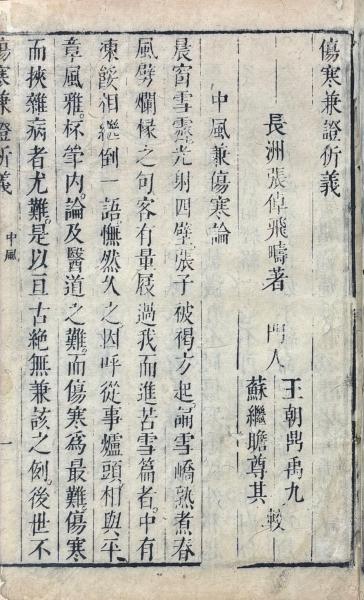 傷寒兼證析義
長洲張倬飛疇著
門人
王朝鼎禹九
蘇繼瞻尊其
較
中風兼傷寒論
晨窗雪霽光射四壁張子被褐方起誦雪嶠熟煮春
風劈爛椽之句客有暈屐過我而進苦雪篇者中有
凍餒相繼倒一語憮然久之因呼從事爐頭相與平
章風雅杯斝內論及醫道之難而傷寒為最難傷寒
而挾雜病者尤難是以亘古絕無兼該之例後世不
傷寒兼證析義
中風
一